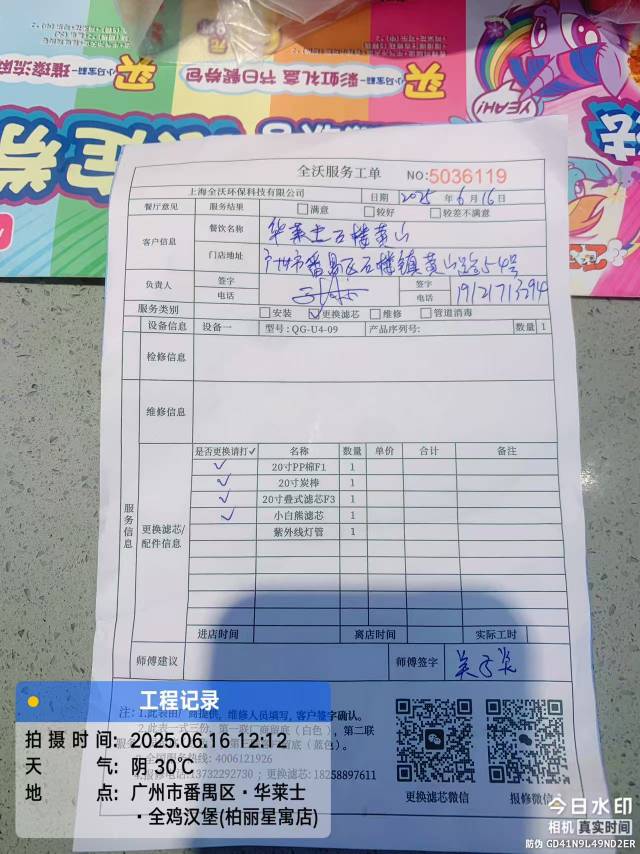 小马宝莉—璀璨流麻
买
小马宝莉—彩虹礼盒 节日餐券包
买
YEAH!
全沃服务工单
NO:5036119
上海全沃环保科技有限公司 日期 2025年6月16日
餐厅意见 服务结果 满意 较好 较差不满意
客户信息 餐饮名称 华莱士石楼黄山
门店地址 广州市番禺区石楼镇黄山路54号
负责人 签字 签字
电话 电话 19121713294
服务类别 安装 更换滤芯 维修 管道消毒
设备信息 设备一 型号:QG-U4-09 产品序列号: 数量 1
检修信息
维修信息
服务信息
更换滤芯/配件信息
是否更换请打✓ 名称 数量 单价 合计 备注
✓ 20寸PP棉F1 1
✓ 20寸炭棒 1
✓ 20寸叠式滤芯F3 1
✓ 小白熊滤芯 1
紫外线灯管 1
进店时间 离店时间 实际工时
师傅建议 师傅签字
注:1.此表由厂商提供,维修人员填写,客户签字确认。
2.此表一式三份,第一联厂商留底(白色),第二联
留底(蓝色)。
全国服务热线:4006121926
4.报修电话:13732292730;更换滤芯:18258897611
更换滤芯微信 报修微信
工程记录
拍摄时间:2025.06.16 12:12
天气:阴 30℃
地点:广州市番禺区·华莱士
·全鸡汉堡(柏丽星寓店)
今日水印
相机 真实时间
防伪 GD41N9L49ND2ER